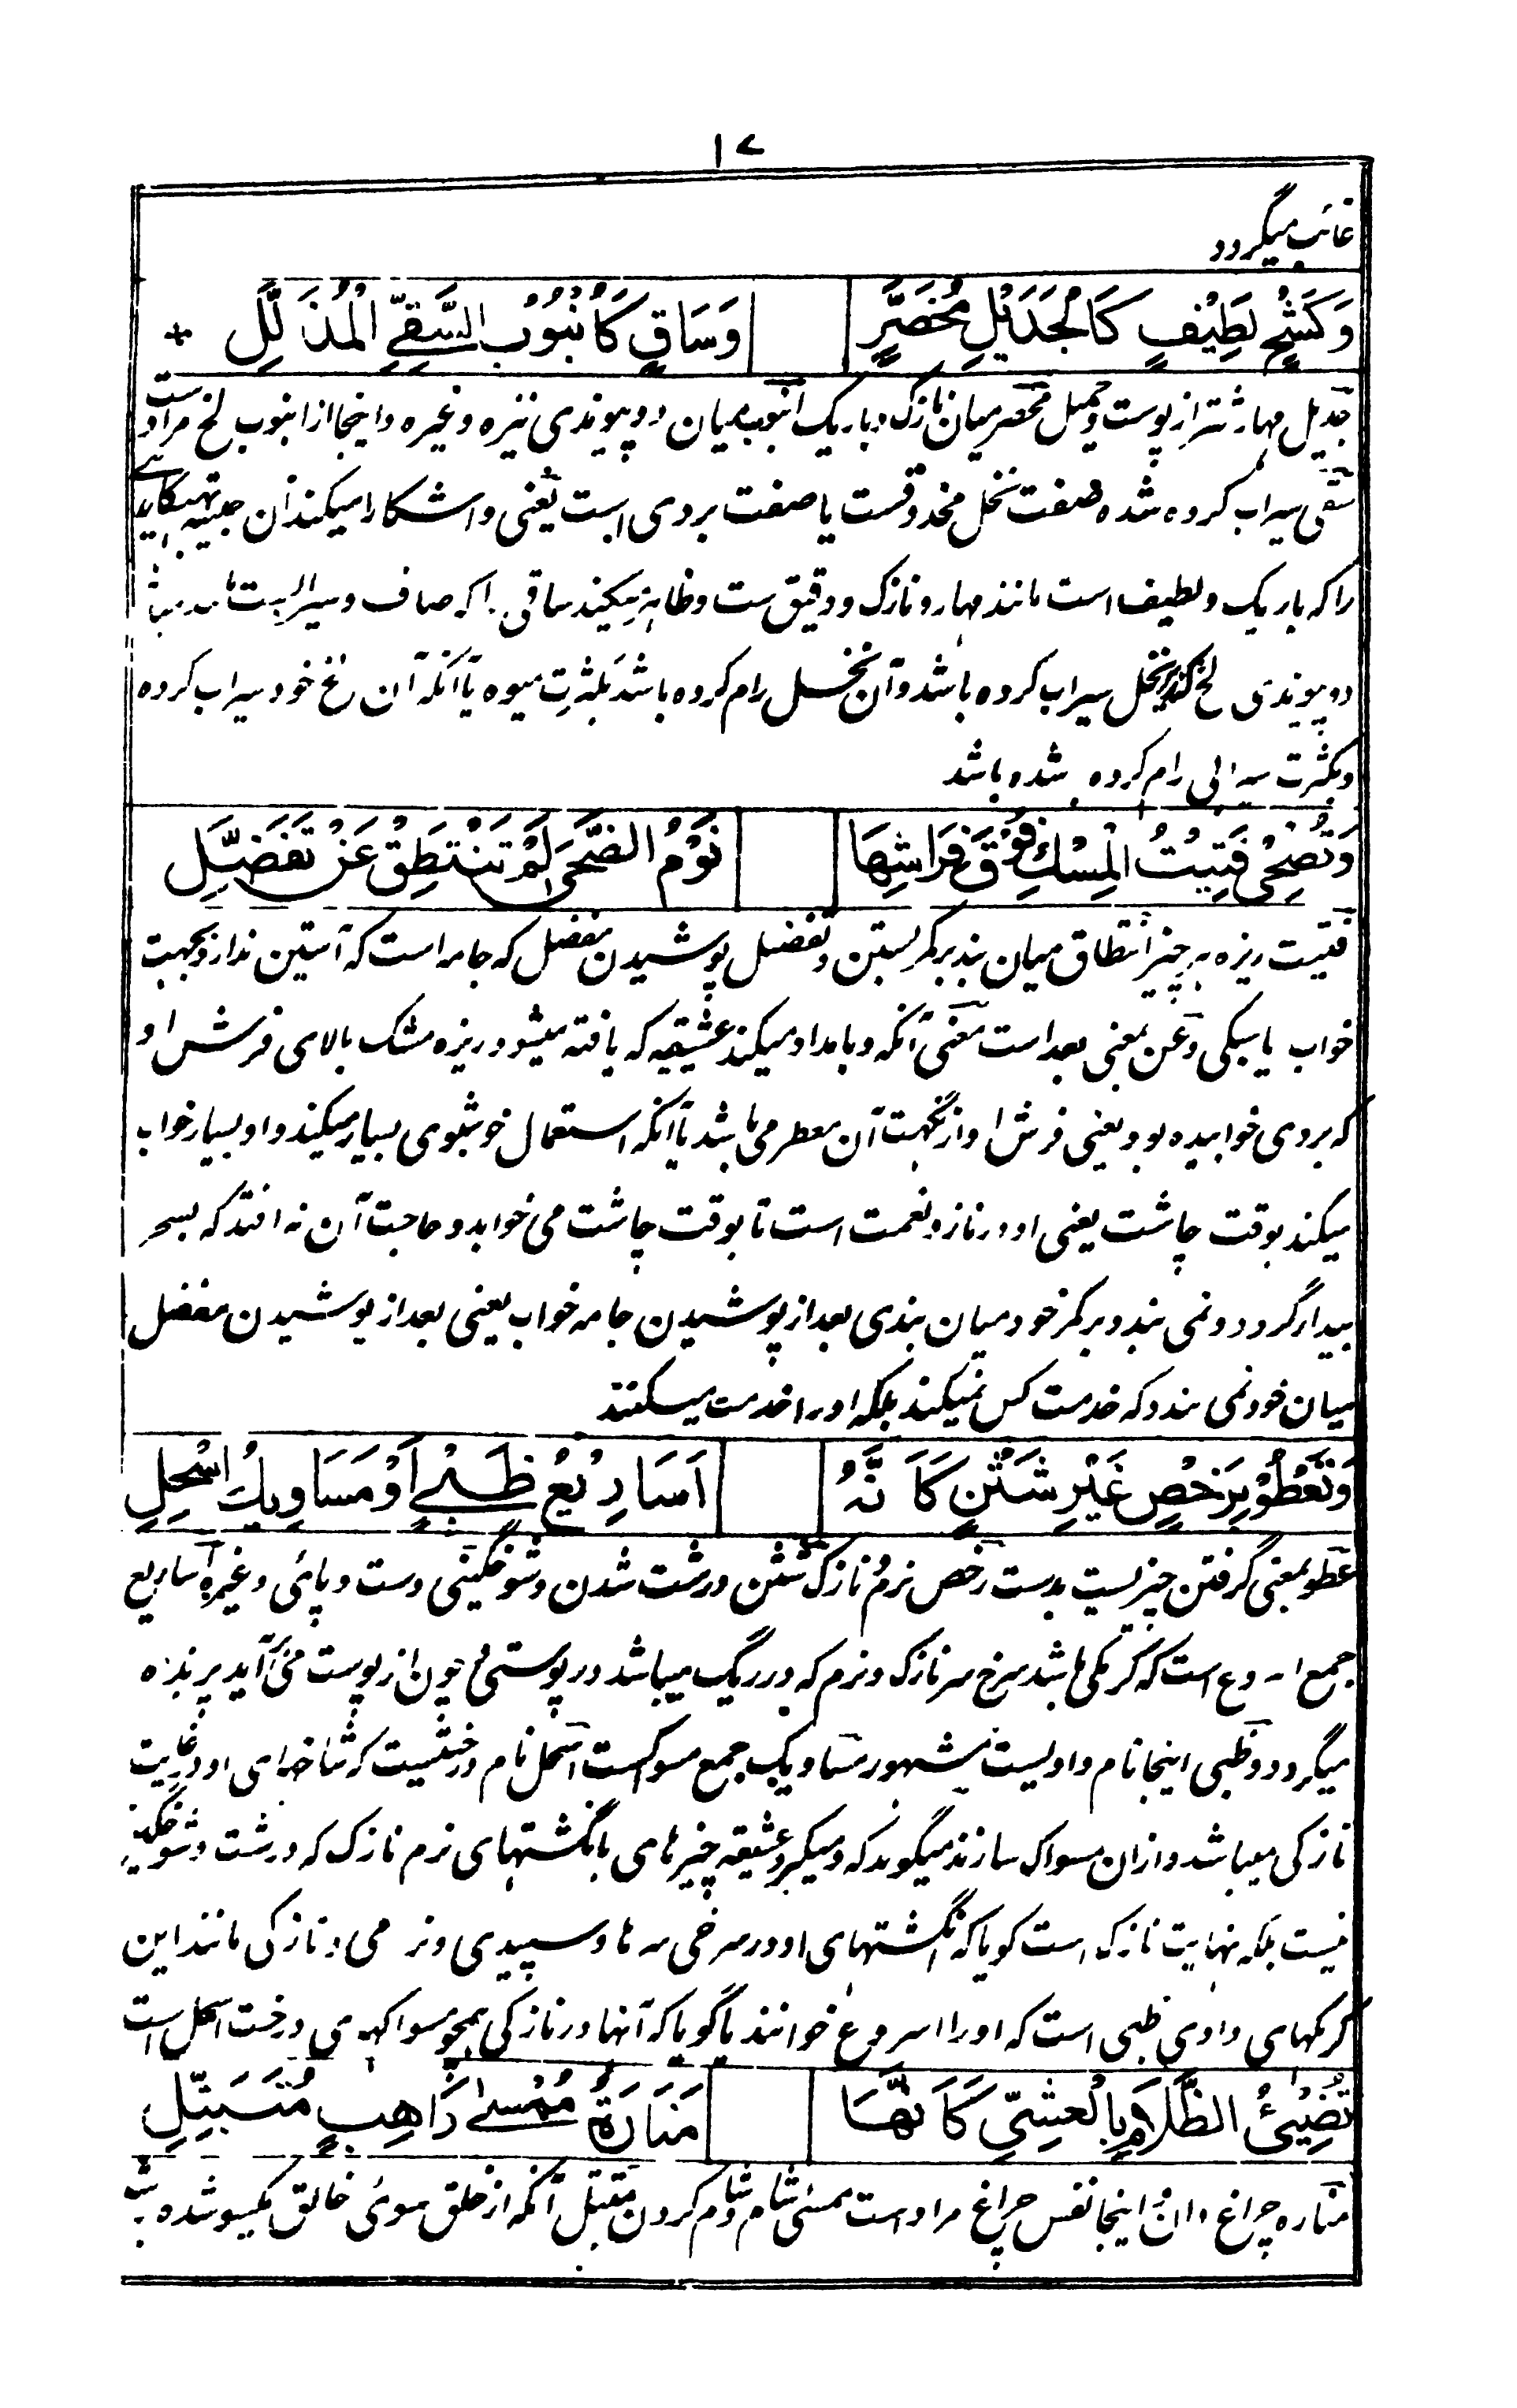 ۱۷
غائب میگردد
وَكَشْحٍ لَطِيْفٍ كَالْجَدِيْلِ مُخَصَّرٍ وَسَاقٍ كَأُنْبُوْبِ السَّقِيِّ الْمُذَلَّلِ
جدیل مهار شتر از پوست و جمیل مخصر میان نازک و باریک انبوب میان دو پیوندی نیزه و غیره و اینجا از انبوب لخ مراد ست
سقی سیراب کرده شده صفت نخل محذوفست یا صفت بردی است یعنی و آشکارا میکند آن حبیبه تهیگاهی
را که باریک و لطیف است مانند مهار و نازک و دقیق ست و ظاهر میکند ساقی را که صاف و سیرابست مانند میان
دو پیوندی لخ که زیر نخل سیراب کرده باشد و آن نخل رام کرده باشد بکثرت میوه یا آنکه آن لخ خود سیراب کرده
و بکثرت سیرابی رام کرده شده باشد
وَتُضْحِيْ فَتِيْتُ الْمِسْكِ فَوْقَ فِرَاشِهَا نَؤُمُ الضُّحَى لَمْ تَنْتَطِقْ عَنْ تَفَضُّلِ
فتیت ریزه هر چیز انتطاق میان بند بر کمر بستن و تفضل پوشیدن مفضل که جامه است که آستین ندارد بجهت
خواب یا سبکی و عن بمعنی بعد است معنی آنکه و بامداد میکند عشیقه که یافته میشود ریزه مشک بالای فرش او
که بروی خوابیده بود یعنی فرش او از نگهت آن معطر می باشد یا آنکه استعمال خوشبوی بسیار میکند و او بسیار خواب
میکند بوقت چاشت یعنی او در ناز و نعمت است تا بوقت چاشت می خوابد و حاجت آن نه افتد که بسحر
بیدار گردد و نمی بندد بر کمر خود میان بندی بعد از پوشیدن جامه خواب یعنی بعد از پوشیدن مفضل
میان خود نمی بندد که خدمت کس نمیکند بلکه او را خدمت میکنند
وَتَعْطُوْ بِرَخْصٍ غَيْرِ شَثْنٍ كَاَنَّهُ اَسَارِيْعُ ظَبْيٍ اَوْ مَسَاوِيْكُ اِسْحِلِ
عطو بمعنی گرفتن چیزیست بدست رخص نرم و نازک شثن درشت شدن و شوخگینی دست و پائی و غیره اساریع
جمع اسروع است که کرمکی باشد سرخ سر نازک و نرم که در ریگ میباشد در پوستی چون از پوست می آید پرنده
میگردد و ظبی اینجا نام وادیست مشهور مساویک جمع مسواکست اسحل نام درختیست که شاخهای او در غایت
نازکی میباشد و ازان مسواک سازند میگوید که و میگیرد عشیقه چیزهای بانگشتهای نرم نازک که درشت و شوخگین
نیست بلکه نهایت نازک است گویا که انگشتهای او در سرخی سرها و سپیدی و نرمی و نازکی مانند این
کرمکهای وادی ظبی است که او را اسروع خوانند یا گویا که آنها در نازکی همچو مسواکهای درخت اسحل است
تُضِيْئُ الظَّلَامَ بِالْعَشِيِّ كَاَنَّهَا مَنَارَةُ مُمْسَى رَاهِبٍ مُتَبَتِّلِ
مناره چراغ دان اینجا نفس چراغ مراد است ممسی شام و شام کردن متبتل آنکه از خلق سوی خالق یکسو شده